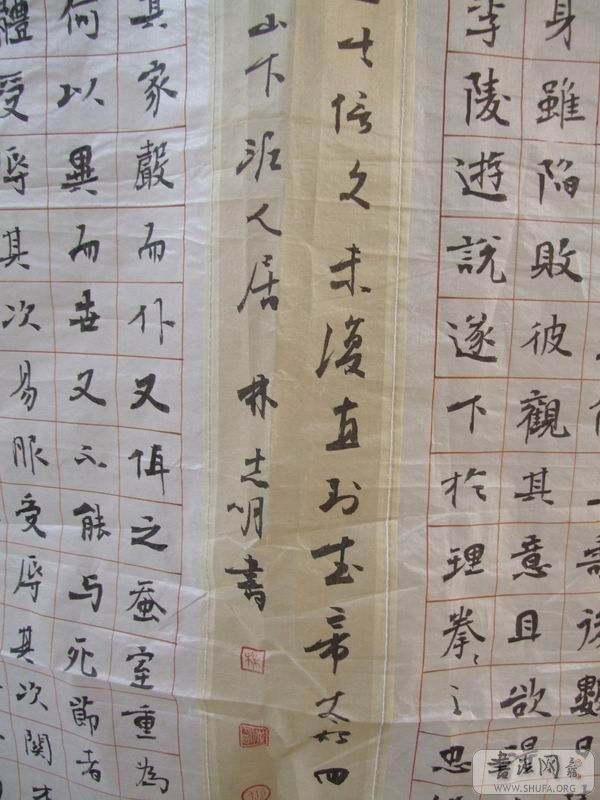 身雖陷敗彼觀其意且欲得
李陵遊說遂下於理拳々之忠
信久未復直到武帝太始四
山下派人居 林志明書
其家聲而仆又佴之蚕室重為
何以異而世又不能与死節者
體受辱其次易服受辱其次關木
書法网
WWW.SHUFA.ORG